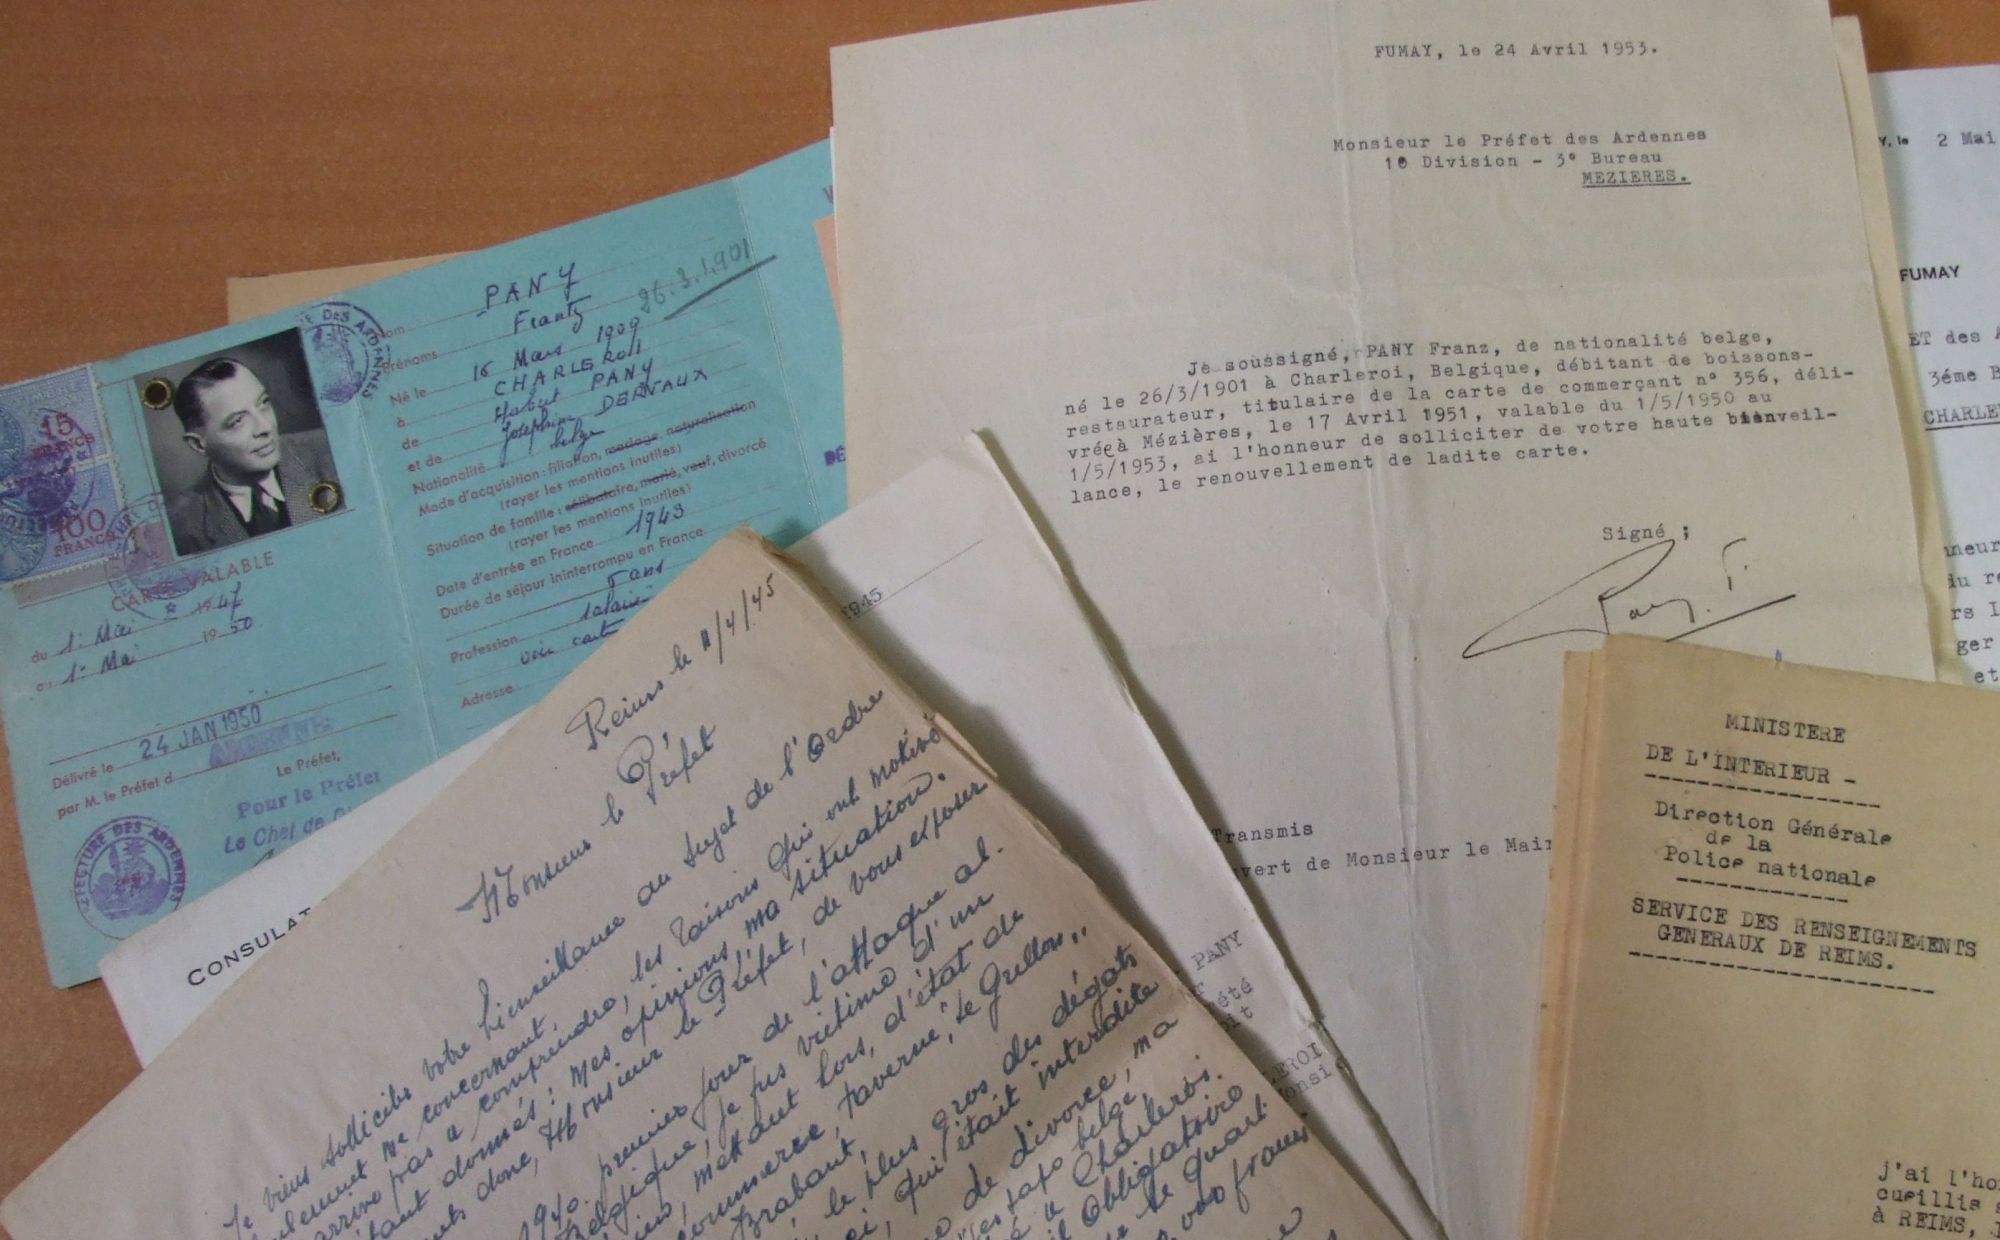 PANY
26.3.1901
Prénoms Frantz
Né le 16 Mars 1909
à CHARLEROI
de Hubert PANY
et de Joséphine DERVAUX
Nationalité belge
Mode d'acquisition : filiation, mariage, naturalisation
(rayer les mentions inutiles)
Situation de famille : célibataire, marié, veuf, divorcé
(rayer les mentions inutiles)
Date d'entrée en France 1943
Durée de séjour ininterrompu en France
5 ans
Profession salarié
voir carte
Adresse
15
FRANCS
100
FRANCS
CARTE VALABLE
du 1er Mai 1947
au 1er Mai 1950
Délivré le 24 JAN 1950
par M. le Préfet d ARDENNES
Le Préfet,
Pour le Préfet
Le Chef de
PREFECTURE DES ARDENNES
CONSULAT
1945
Reims le 11/4/45
Monsieur le Préfet
Je viens solliciter votre bienveillance au sujet de l'Ordre
me concernant.
arrive pas à comprendre, les raisons qui ont motivé
étant donnés : mes opinions, ma situation.
donc, Monsieur le Préfet, de vous exposer
1940. premier jour de l'attaque al.
Belgique, je fus victime d'un
mettant hors, d'état de
commerce, taverne, "Le Grillon",
Brabant,
le plus gros des dégats
qui était interdite
de divorce, ma
belge,
à Charleroi.
obligatoire
le quart
francs
FUMAY, le 24 Avril 1953.
Monsieur le Préfet des Ardennes
1e Division - 3° Bureau
MEZIERES.
Je soussigné, PANY Franz, de nationalité belge,
né le 26/3/1901 à Charleroi, Belgique, débitant de boissons-
restaurateur, titulaire de la carte de commerçant n° 356, déli-
vrée à Mézières, le 17 Avril 1951, valable du 1/5/1950 au
1/5/1953, ai l'honneur de solliciter de votre haute bienveil-
lance, le renouvellement de ladite carte.
Signé ;
Pany. F.
Transmis
uvert de Monsieur le Mair
PANY
été
LEROI
onsie
Y, le 2 Mai
FUMAY
ET des A
3éme B
CHARLE
nneur
du re
rs l
ger
et
MINISTERE
DE L'INTERIEUR -
Direction Générale
de la
Police nationale
SERVICE DES RENSEIGNEMENTS
GENERAUX DE REIMS.
j'ai l'ho
cueillis
à REIMS,